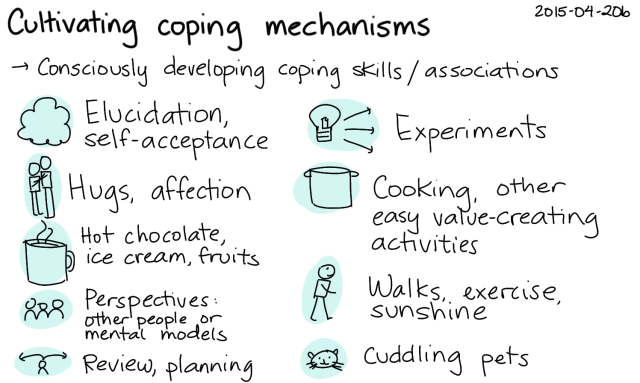 Cultivating coping mechanisms
2015-04-20b
→ Consciously developing coping skills/associations
Elucidation,
self-acceptance
Hugs, affection
Hot chocolate,
ice cream, fruits
Perspectives:
other people or
mental models
Review, planning
Experiments
Cooking, other
easy value-creating
activities
Walks, exercise,
sunshine
Cuddling pets